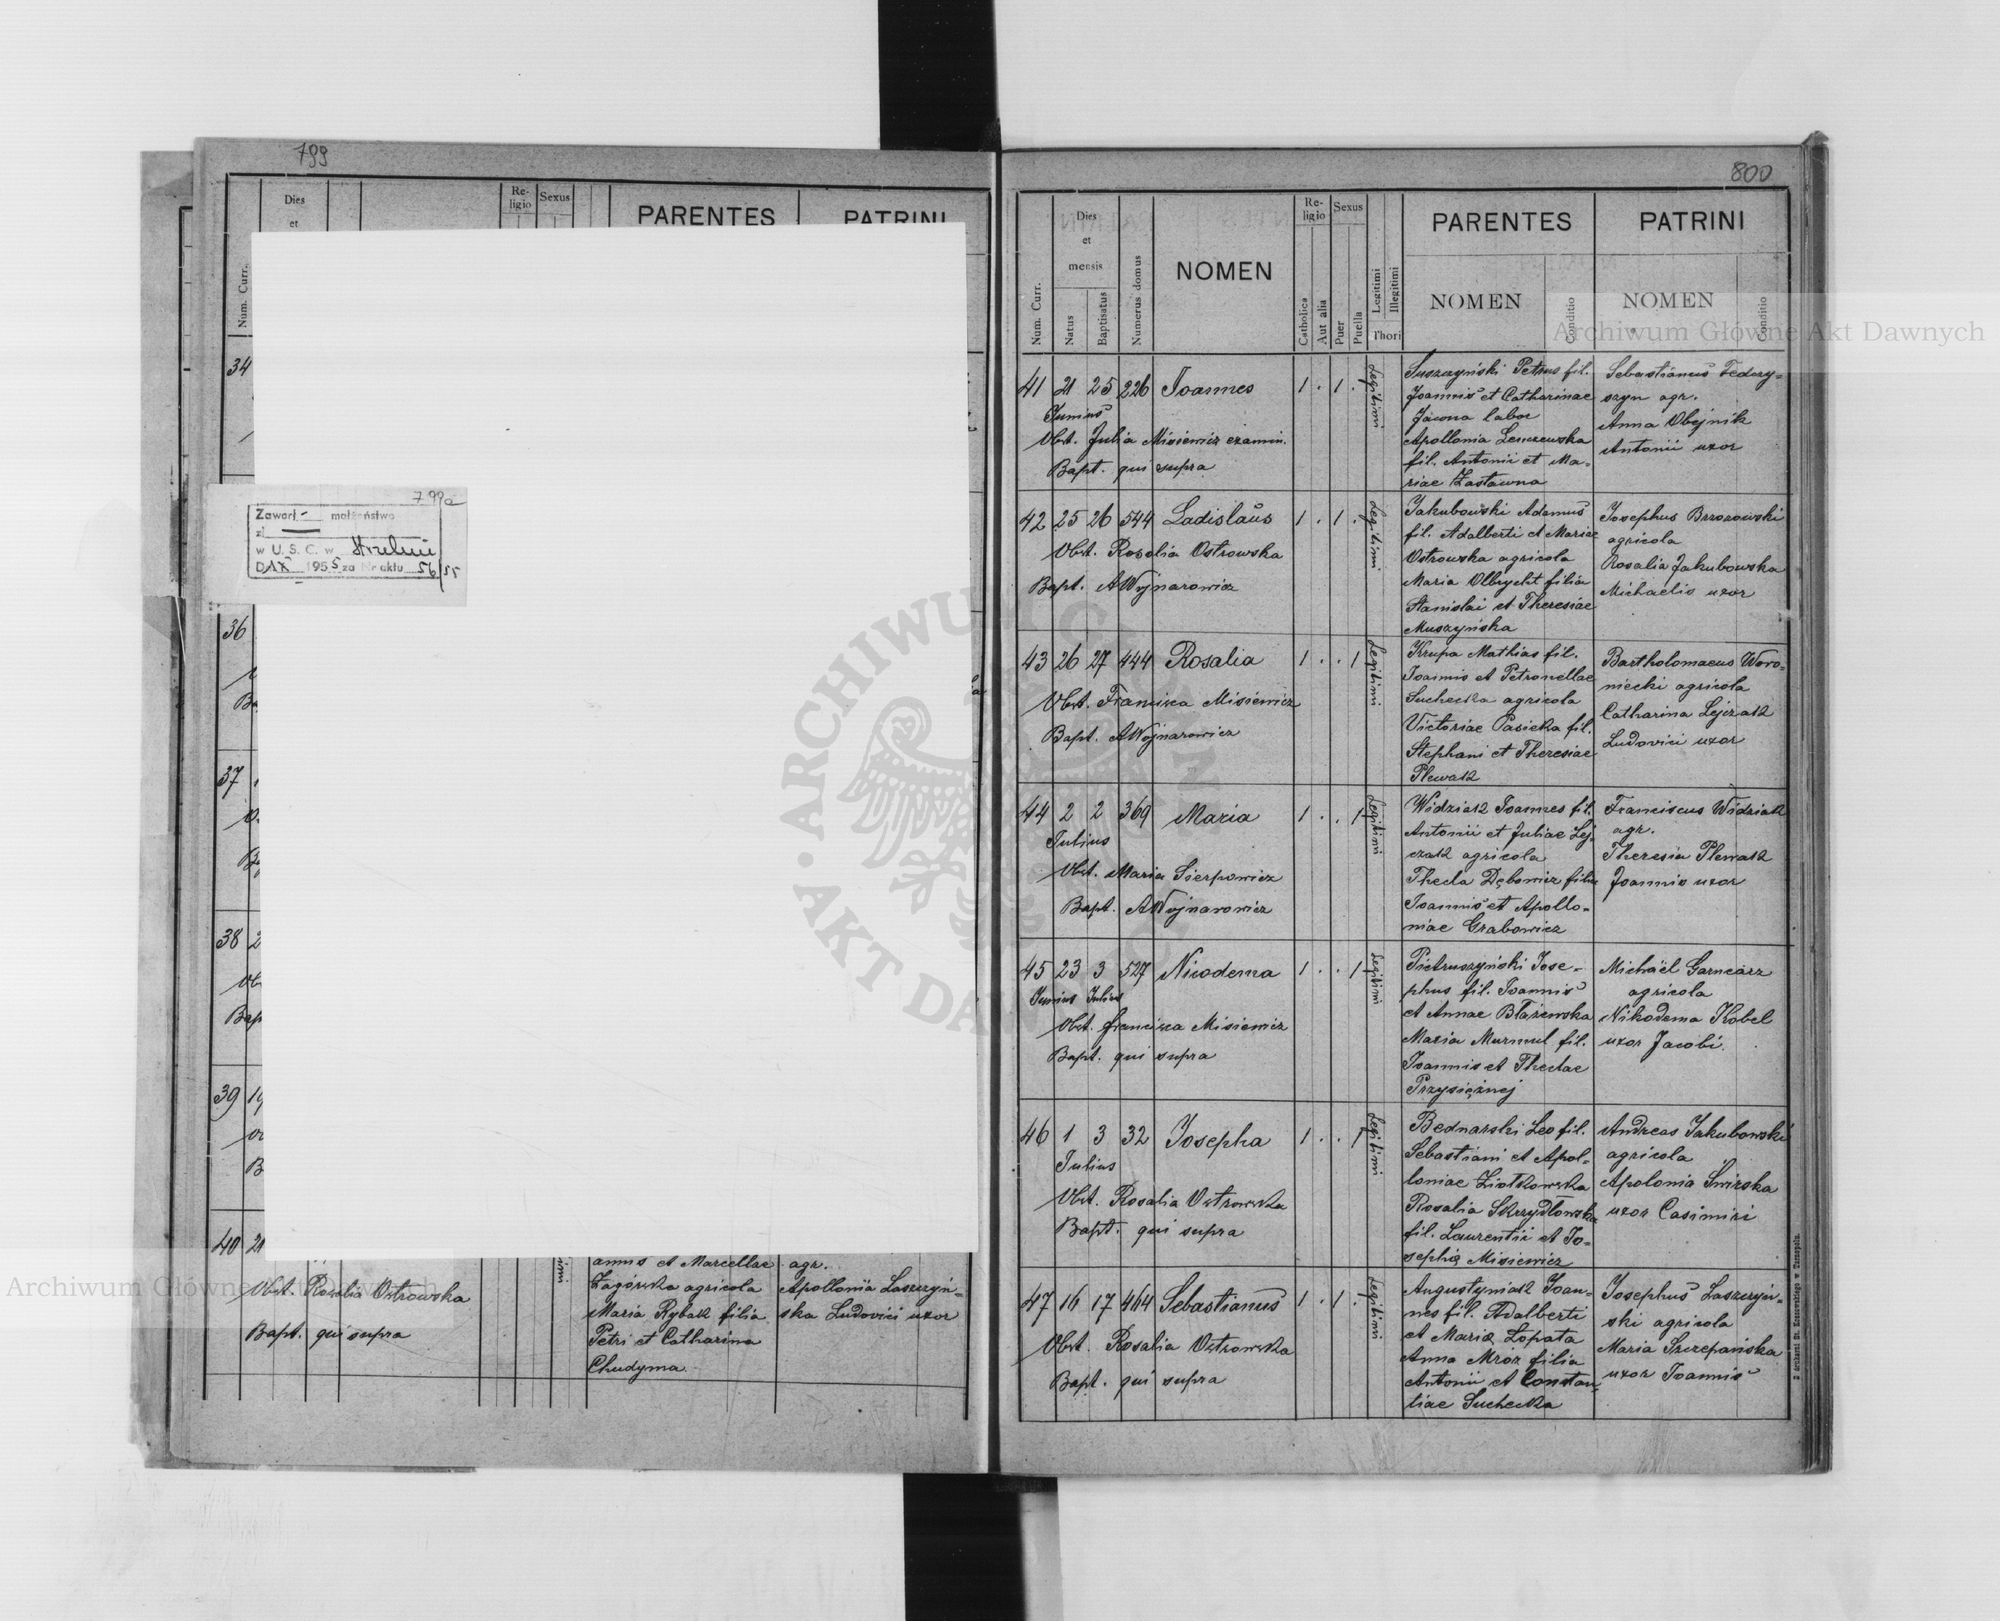 799
Dies
et
Re-
ligio
Sexus
PARENTES
PATRINI
Num. Curr.
34
799a
Zawarł - małżeństwo
zł
w U. S. C. w Strzelnie
D. IX 1955 za Nr aktu 56/55
36
37
38
39
40
annis et Marcellae agr.
Zagórska agricola Apollonia Laszczyń-
Obst. Rosalia Ostrowska Maria Rybak filia ska Ludovici uxor
Bapt. qui supra Petri et Catharina
Chudyma
800
Num. Curr.
Dies
et
mensis
Natus
Baptisatus
Numerus domus
NOMEN
Re-
ligio
Catholica
Aut alia
Sexus
Puer
Puella
Legitimi
Illegitimi
Thori
PARENTES
NOMEN
Conditio
PATRINI
NOMEN
Conditio
41 21 25 226 Joannes 1 . 1 . Legitimi
Junius
Obst. Julia Misiewicz examin.
Bapt. qui supra
Suszczyński Petrus fil.
Joannis et Catharinae
Jacona labor
Apollonia Lenczewska
fil. Antonii et Ma-
riae Zastawna
Sebastianus Fedczy-
szyn agr.
Anna Obejnik
Antonii uxor
42 25 26 544 Ladislaus 1 . 1 . Legitimi
Obst. Rosalia Ostrowska
Bapt. AWojnarowicz
Jakubowski Adamus
fil. Adalberti et Mariae
Ostrowska agricola
Maria Olbrycht filia
Stanislai et Theresiae
Muszyńska
Josephus Brzozowski
agricola
Rosalia Jakubowska
Michaelis uxor
43 26 27 444 Rosalia 1 . . 1 Legitimi
Obst. Francisca Misiewicz
Bapt. AWojnarowicz
Krupa Mathias fil.
Joannis et Petronellae
Suchecka agricola
Victoriae Pasieka fil.
Stephani et Theresiae
Plewak
Bartholomaeus Woro-
niecki agricola
Catharina Lejczak
Ludovici uxor
44 2 2 369 Maria 1 . . 1 Legitimi
Julius
Obst. Maria Sierpowicz
Bapt. AWojnarowicz
Widziak Joannes fil.
Antonii et Juliae Lej-
czak agricola
Thecla Dębowicz filia
Joannis et Apollo-
niae Grabowicz
Franciscus Widziak
agr.
Theresia Plewak
Joannis uxor
45 23 3 527 Nicodema 1 . . 1 Legitimi
Junius Julius
Obst. Francisca Misiewicz
Bapt. qui supra
Pietruszyński Jose-
phus fil. Joannis
et Annae Błażewska
Maria Murmul fil.
Joannis et Theclae
Przysiężnej
Michaël Garncarz
agricola
Nikodema Kobel
uxor Jacobi
46 1 3 32 Josepha 1 . . 1 Legitimi
Julius
Obst. Rosalia Ostrowska
Bapt. qui supra
Bednarski Leo fil.
Sebastiani et Apol-
loniae Ziółkowska
Rosalia Skrzydłowska
fil. Laurentii et Jo-
sephą Misiewicz
Andreas Jakubowski
agricola
Apolonia Świrska
uxor Casimiri
47 16 17 464 Sebastianus 1 . 1 . Legitimi
Obst. Rosalia Ostrowska
Bapt. qui supra
Augustyniak Joan-
nes fil. Adalberti
et Marią Łopata
Anna Mróz filia
Antonii et Constan-
tiae Suchecka
Josephus Laszczyń-
ski agricola
Maria Szczepańska
uxor Joannis
Archiwum Główne Akt Dawnych
Archiwum Główne Akt Dawnych
ARCHIWUM
AKT